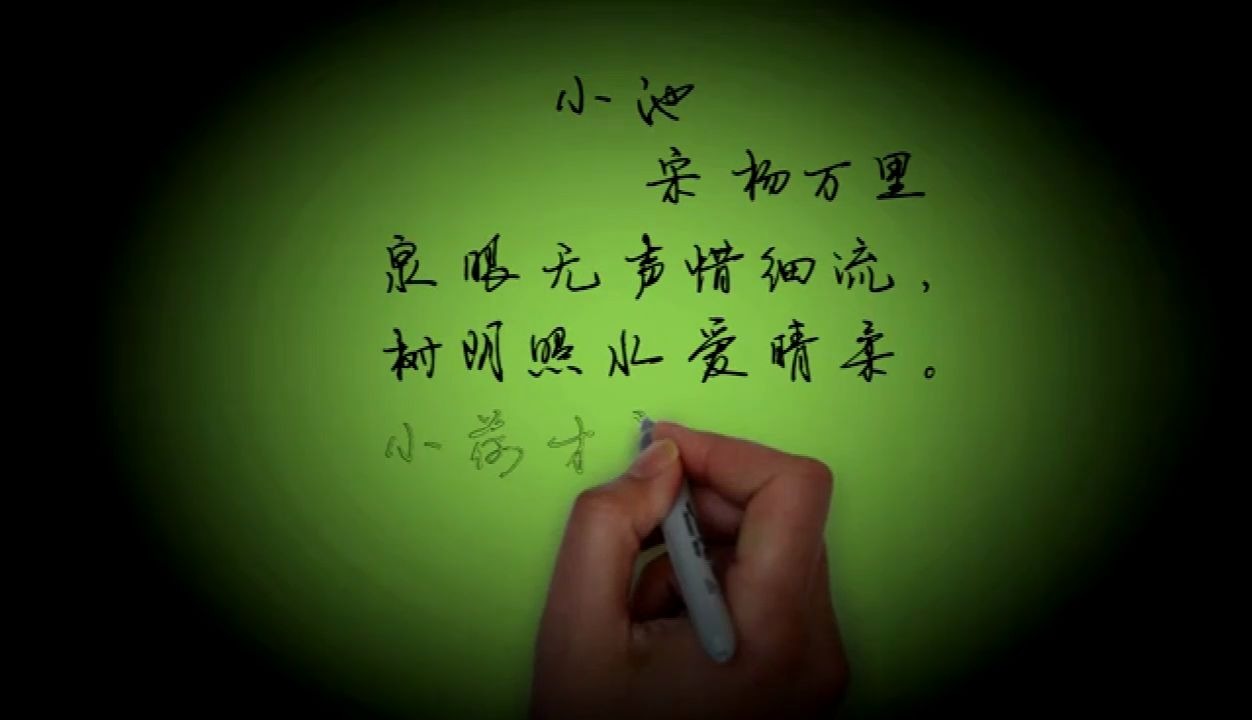 小池
宋 杨万里
泉眼无声惜细流，
树阴照水爱晴柔。
小荷才